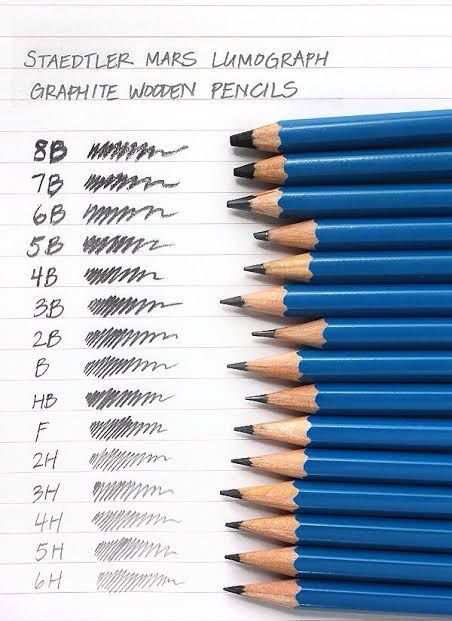 STAEDTLER MARS LUMOGRAPH
GRAPHITE WOODEN PENCILS
8B
7B
6B
5B
4B
3B
2B
B
HB
F
2H
3H
4H
5H
6H